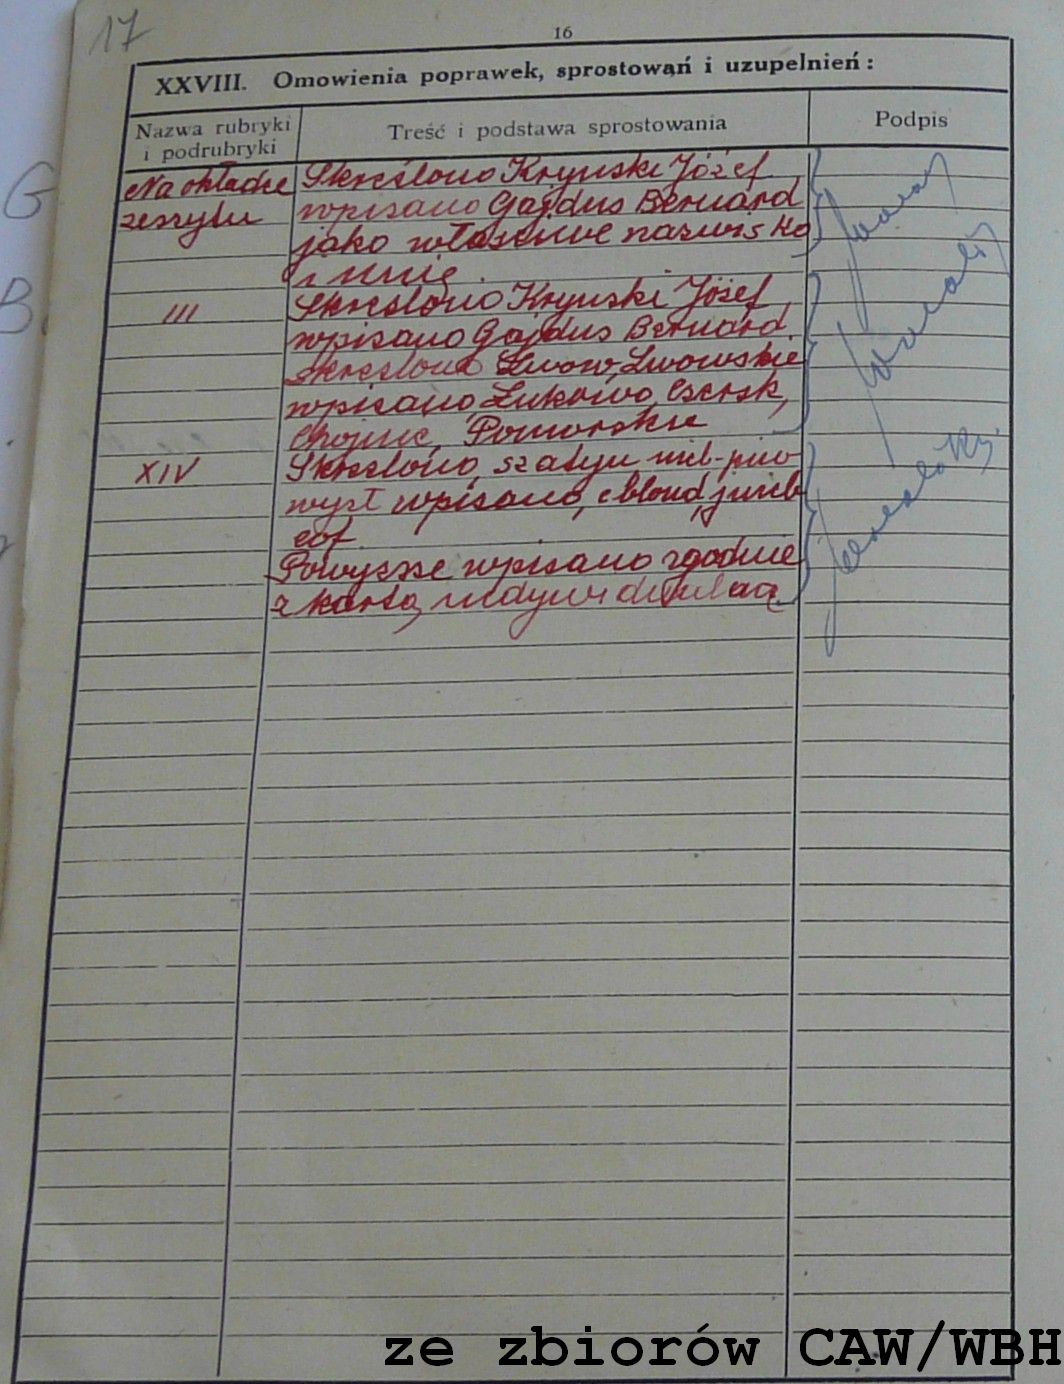 17
16
XXVIII. Omowienia poprawek, sprostowań i uzupelnień:
Nazwa rubryki
i podrubryki
Treść i podstawa sprostowania
Podpis
Na okładce
zeszytu
Skreślono Kryński Józef,
wpisano Gajdus Bernard
jako właściwe nazwisko
i imię.
III
Skreślono Kryński Józef,
wpisano Gajdus Bernard,
skreślono Lwów, Lwowskie
wpisano Łukowo, Czersk,
Chojnice, Pomorskie
XIV
Skreślono, szatyn nieb-piw
wpisano, c blond, nieb
Powyższe wpisano zgodnie
z kartą indywidualną
G
B
ze zbiorów CAW/WBH